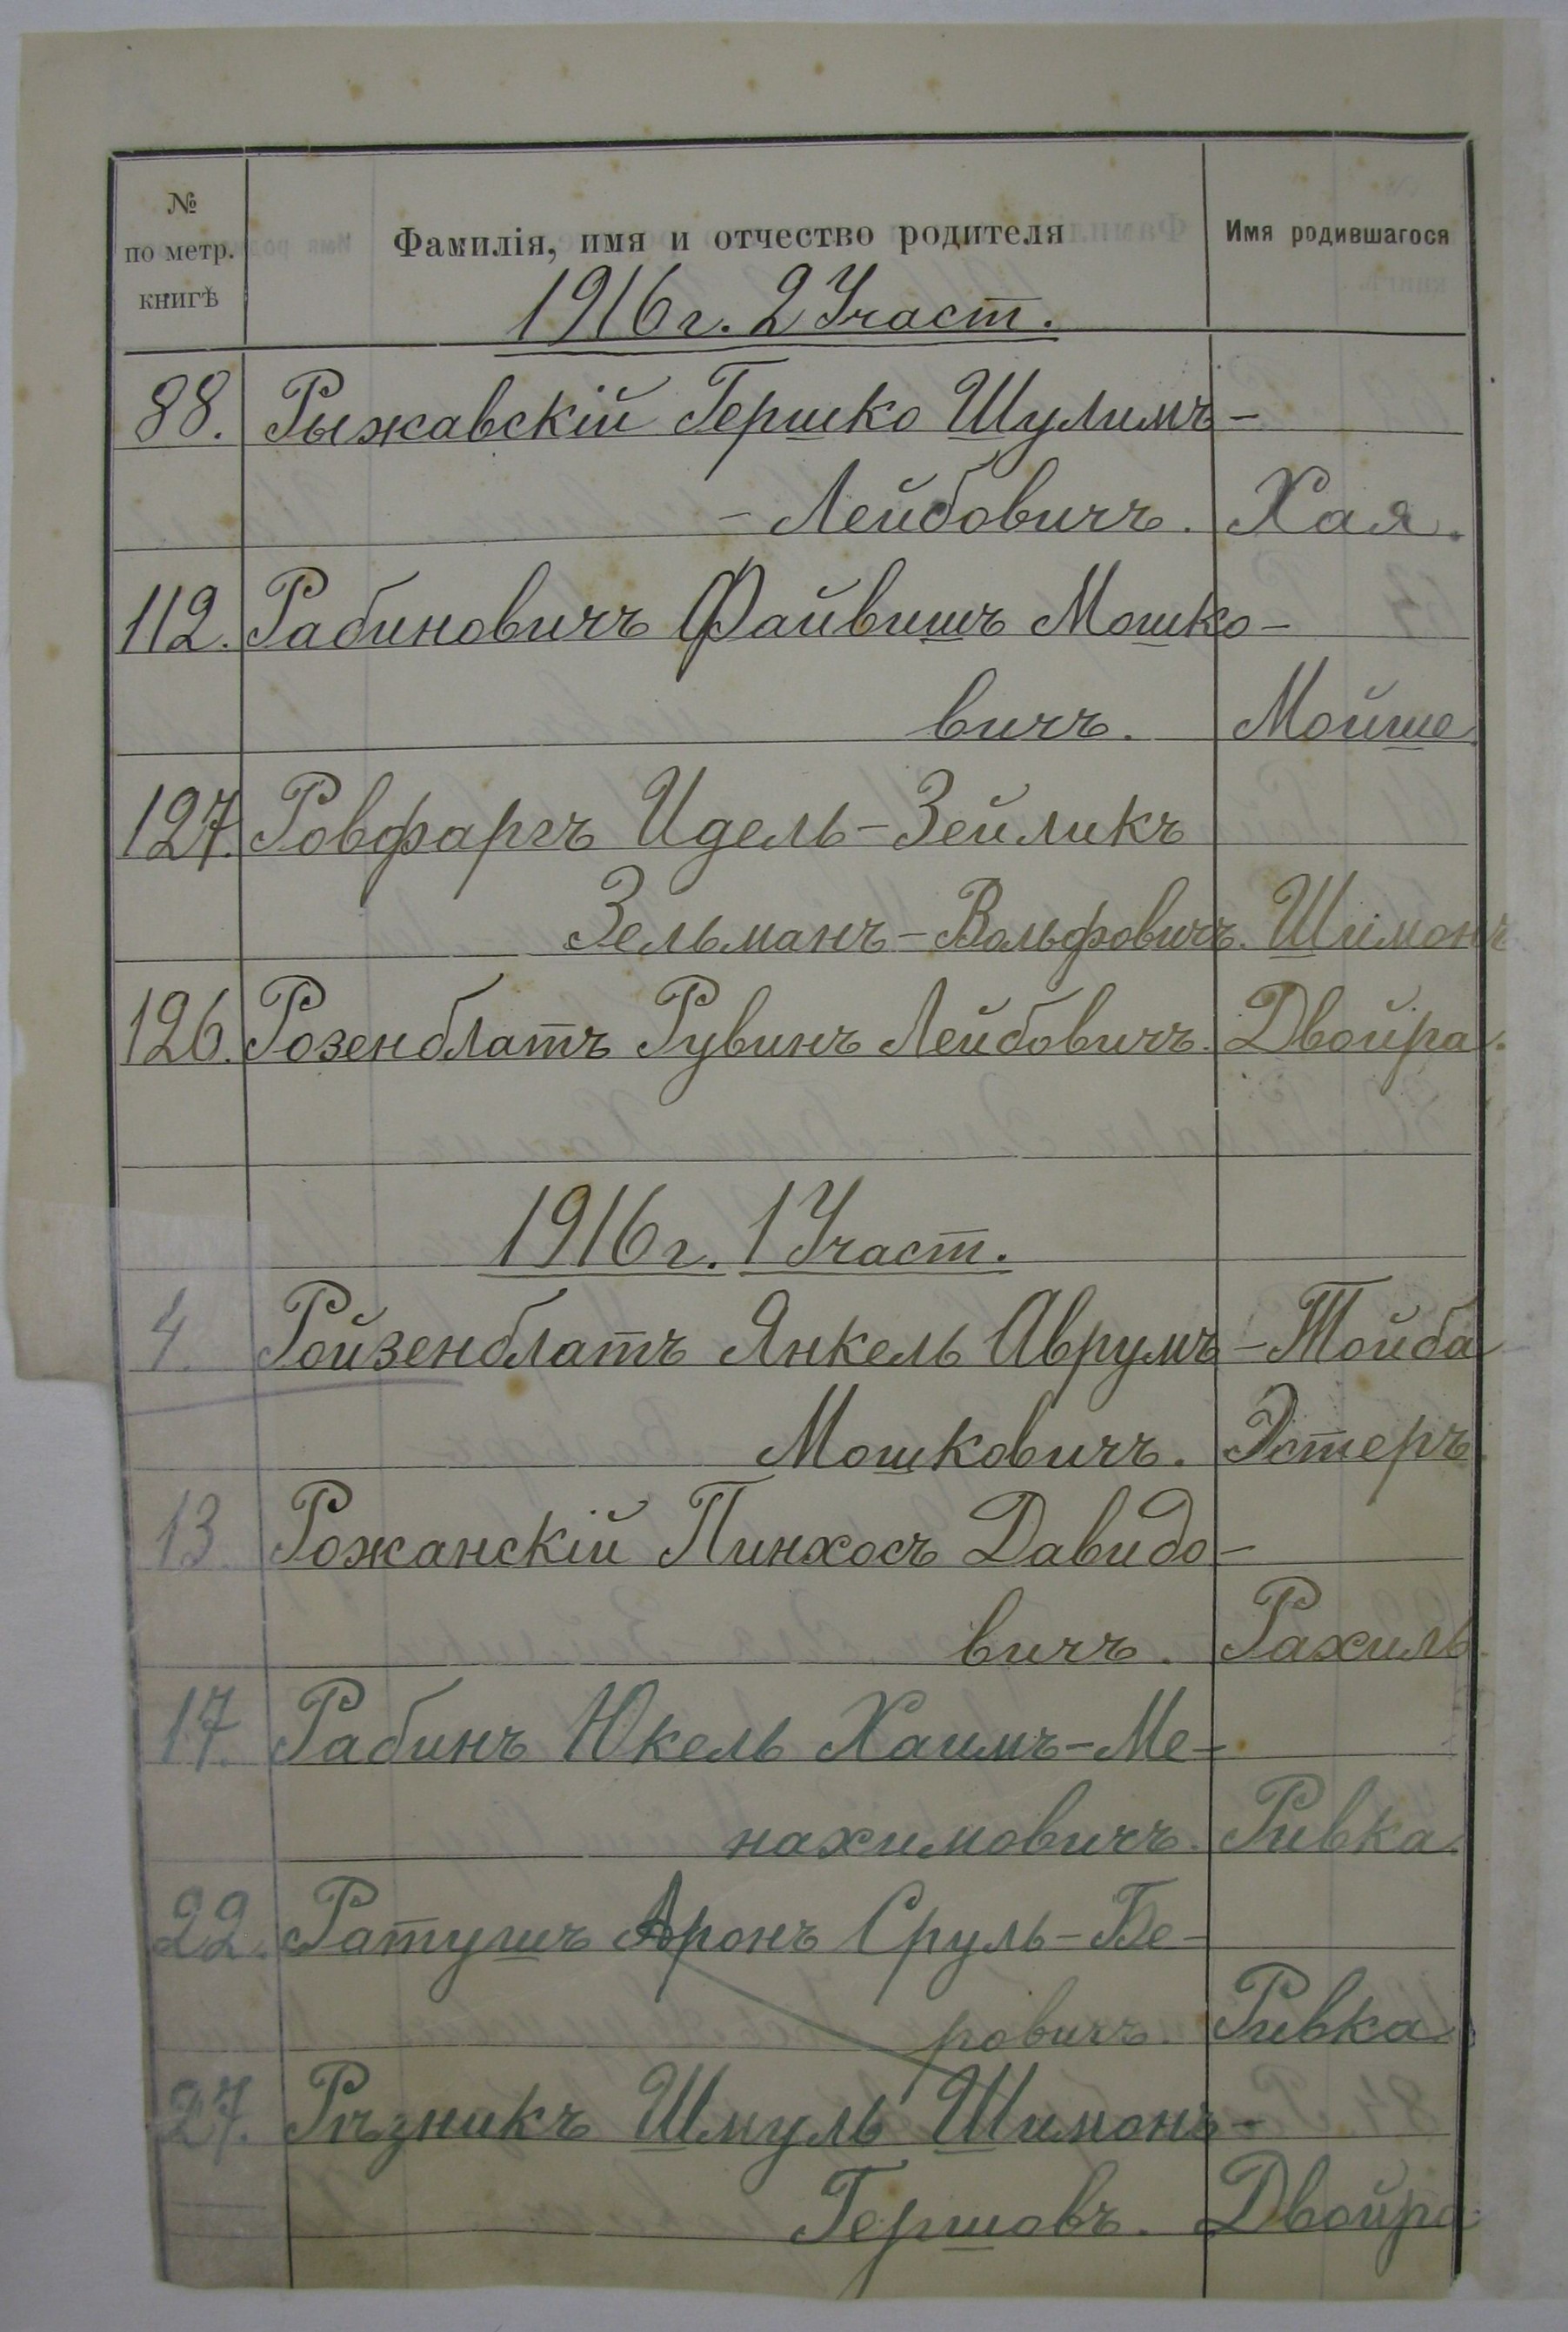 № по метр. книгѣ Фамилія, имя и отчество родителя Имя родившагося
1916 г. 2 Участ.
88. Рыжавскій Гершко Шулимъ-
-Лейбовичъ. Хая.
112. Рабиновичъ Файвишъ Мошко-
вичъ. Мойше.
127. Ровфаргъ Идель-Зейликъ
Зельманъ-Вольфовичъ. Шимонъ
126. Розенблатъ Рувинъ Лейбовичъ. Двойра.
1916 г. 1 Участ.
4. Ройзенблатъ Янкель Аврумъ-Тойба
Мошковичъ. Эстеръ.
13. Рожанскій Пинхосъ Давидо-
вичъ. Рахиль.
17. Рабинъ Юкель Хаимъ-Ме-
нахимовичъ. Ривка.
22. Ратушъ Аронъ Сруль-Бе-
ровичъ. Ривка
27. Рѣзникъ Шмуль Шимонъ-
Гершовъ. Двойра